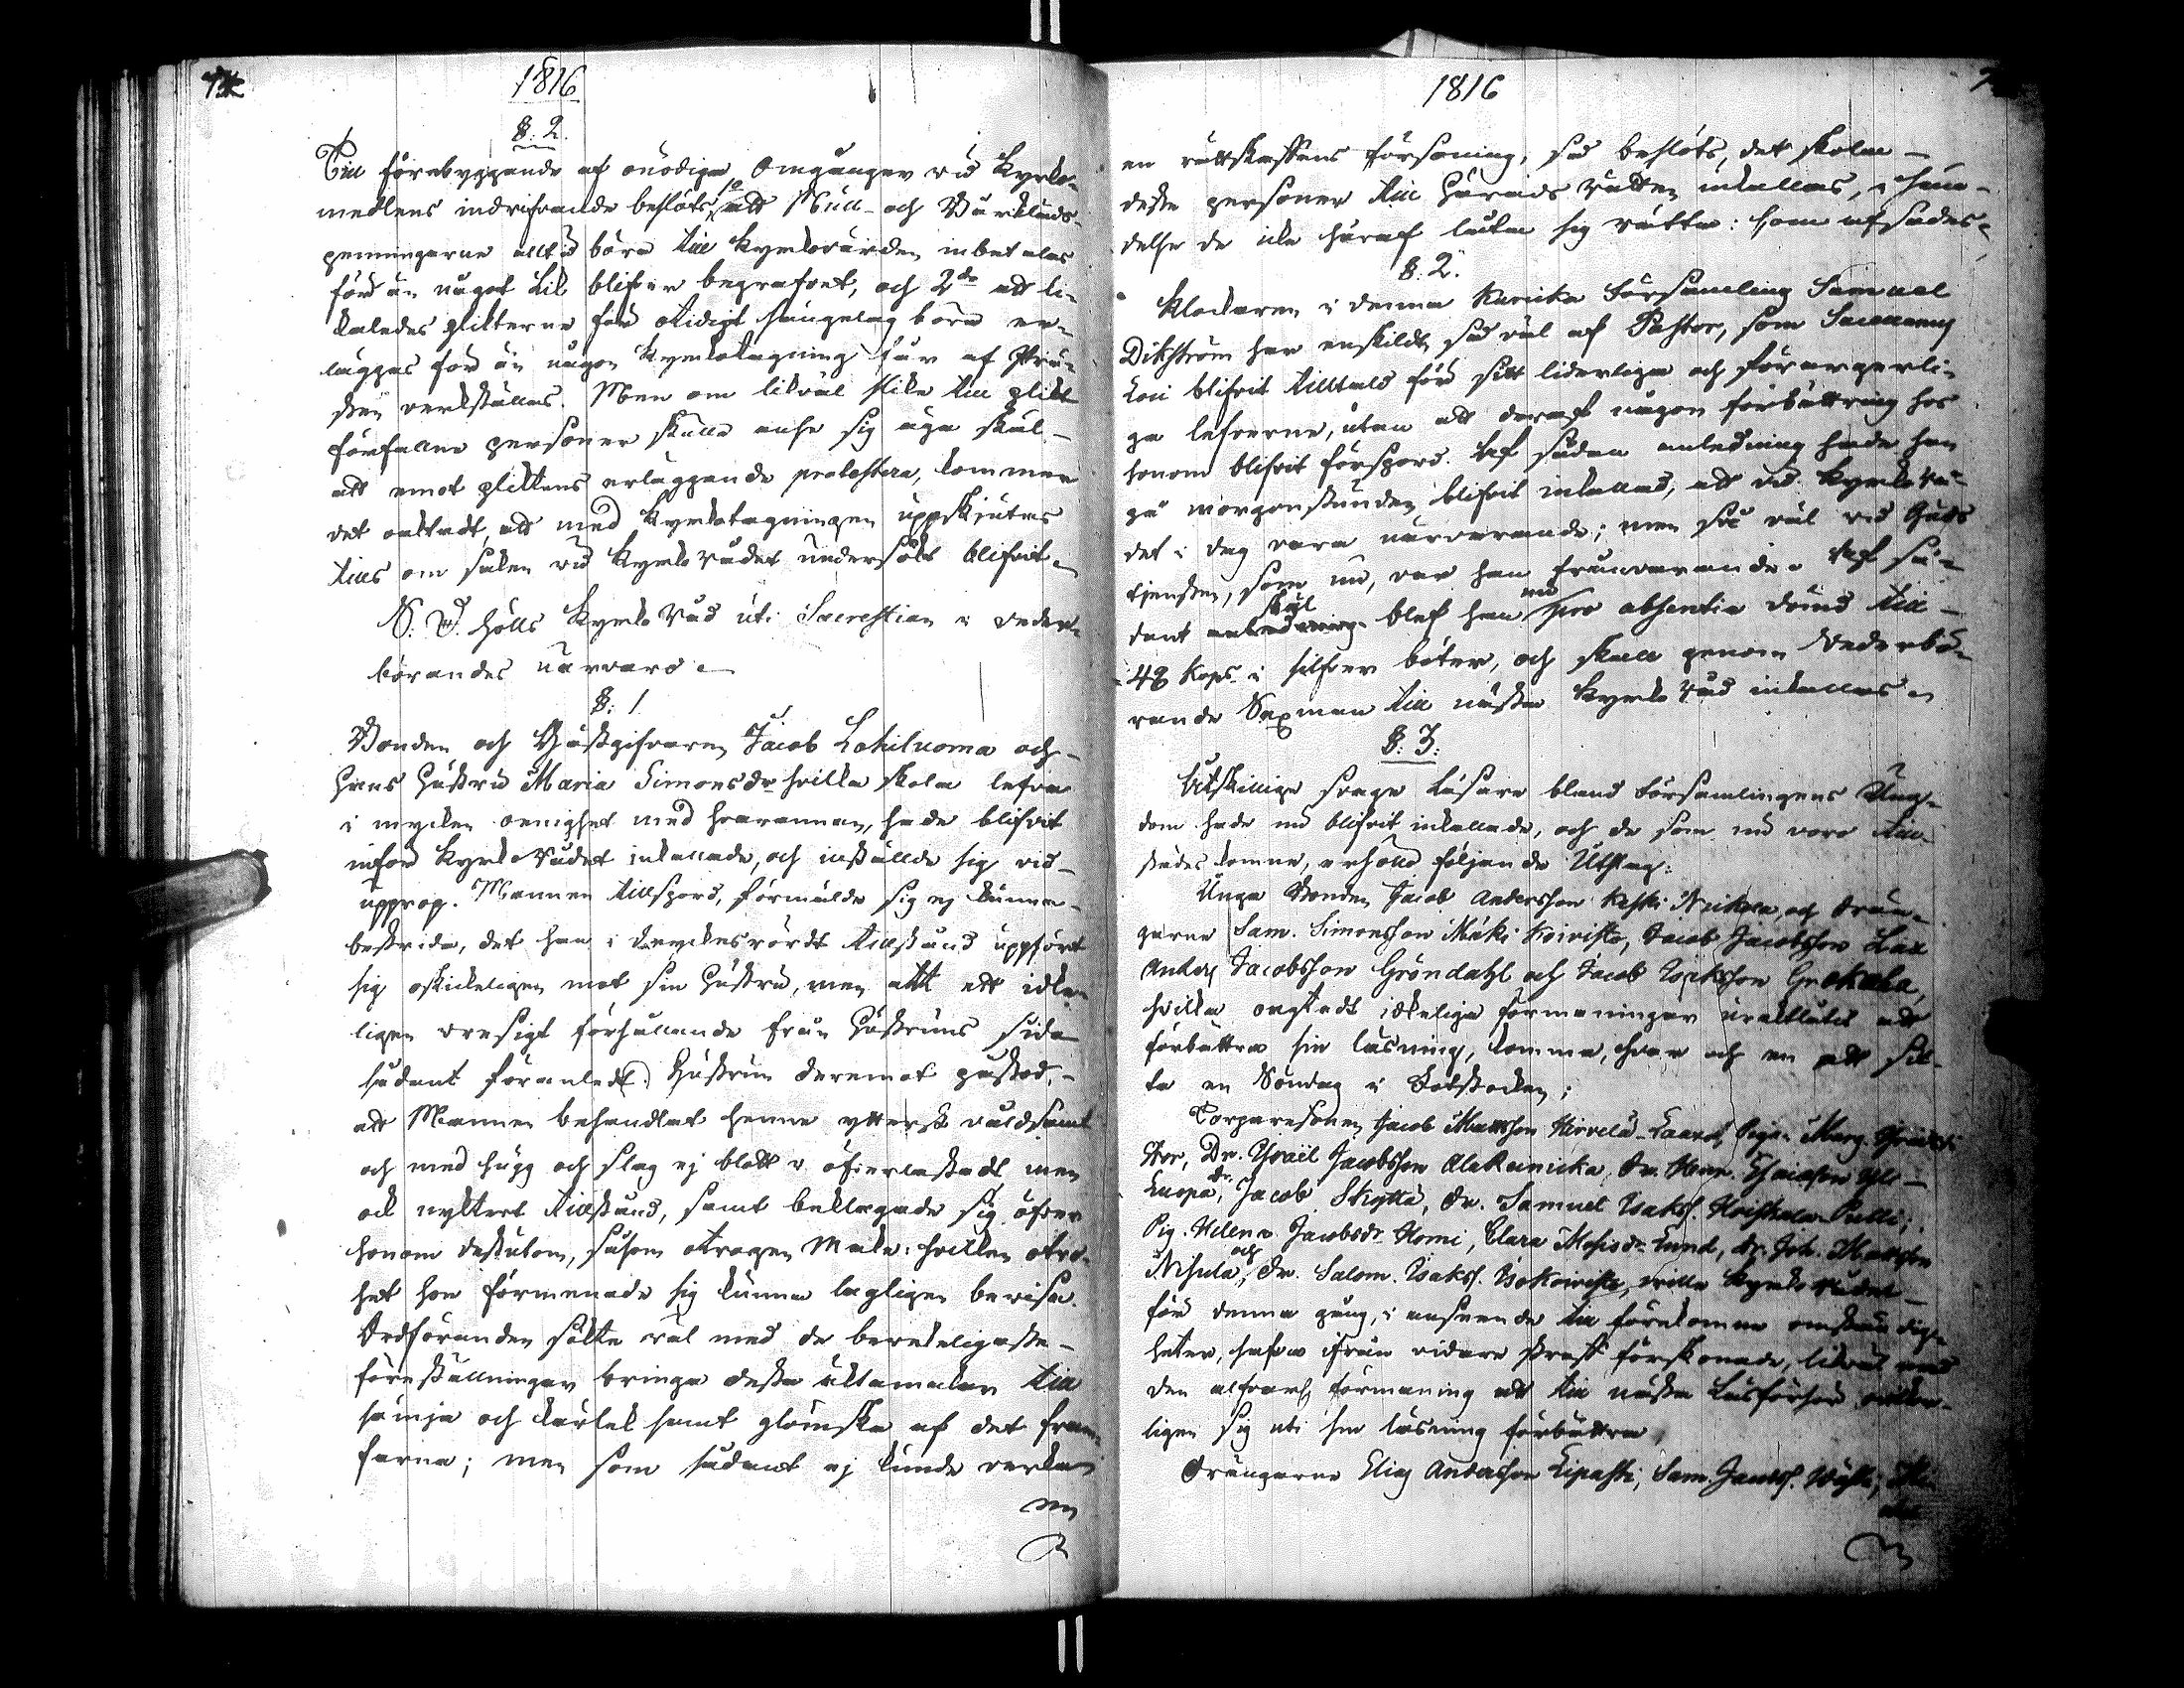 1816
§: 2.
Till förebyggande af onödiga Omgångar vid Kyrko-
medlens indrifvande beslöts 1o att Mull- och Bårkläds-
penningarne alltid böra till Kyrkovärden inbetalas
förr än något Lik blifver begrafvet, och 2do att li-
kaledes plikterne för otidigt sängelag böra er-
läggas förr än någon Kyrkotagning får af Prä-
sten verkställas. Men om likväl slike till plikt
förfallne personer skulle anse sig äga skäl
att emot pliktens erläggande protestera, kommer
det oaktadt, att med Kyrkotagningen uppskjutas
tills om saken vid Kyrko Rådet undersökt blifvit.
S. D. hölls Kyrko Råd uti Sacrestian i veder-
börandes närvaro.
§: 1.
Bonden och Gästgifvaren Jacob Lohiluoma och
hans Hustru Maria Simonsdr hvilka skola lefva
i mycken oenighet med hvarannan, hade blifvit
inför Kyrko Rådet inkallade, och inställde sig vid
upprop. Mannen tillspord, förmälde sig ej kunna
bestrida, det han i dryckesrördt tillstånd uppfört
sig oskickeligen mot sin Hustru, men att ett idke-
ligen vresigt förhållande från Hustruns sida
sådant föranledt. Hustrun deremot påstod,
att Mannen behandlat henne ytterst våldsamt
och med hugg och slag ej blott i öfverlastadt, men
ock nyktert tillstånd, samt beklagade sig öfver
honom dessutom, såsom otrogen Make: hvilken otro-
het hon förmenade sig kunna lagligen bevisa.
Ordföranden sökte väl med de bevekeligaste
föreställningar bringa dessa äktamakar till
sämja och kärlek samt glömska af det fram-
farna; men som sådant ej kunde verka
en
1816
en rättskaffens försoning, så beslöts, det skola
desse personer till Härads Rätten inkallas, i hän-
delse de icke häraf låta sig rätta: som afsades.
§: 2.
Klockaren i denna Kurikka Församling Samuel
Dikström har enskildt, så väl af Pastor, som Sacellanus
Loci blifvit tilltald för sitt liderliga och förargerli-
ga lefverne, utan att deraf någon förbättring hos
honom blifvit förspord. Af sådan anledning hade han
på morgonstunden blifvit inkallad, att vid Kyrko Rå-
det i dag vara närvarande; men så väl vid Guds
tjensten, som nu, var han frånvarande. Af så-
dant skäl blef han nu pro absentia dömd till
48 Kops i silfver böter, och skall genom Vederbö-
rande Sexman till nästa Kyrko Råd inkallas.
§: 3.
Åtskillige svage Läsare bland Församlingens Ung-
dom hade nu blifvit inkallade, och de som nu voro till-
städes komne, erhöllo följande Utslag:
Unga Bonden Jacob Andersson Keski Niukala och Drän-
garne Sam. Simonsson Mäki Koivisto, Jacob Jacobsson Lax
Anders Jacobsson Gröndahl och Jacob Isaksson
hvilka oagtadt idkeliga förmaningar uraktlåtit att
förbättra sin läsning, komma, hvar och en att sit-
ta en Söndag i Fotstocken;
Torparesonen Jacob Mattsson Hirvelä- Pigan Marg.
Dr. Israël Jacobsson Ala Runcka, Dr. Henr.
Luopa, Dr. Jacob Skyttä, Dr. Samuel Isakss. Koiskala Pulli;
Pig. Helena Jacobsdr Homi, Clara Mosisdr Lund, Dr. Joh. Mattsson
Nisula, och Dr. Salom. Isakss. Iso Koivisto, hvilka Kyrko Rådet
för denna gång, i anseende till förekomne omständig-
heter, hafva ifrån vidare straff förskonade, likväl med
den alfvarl. förmaning att till nästa Läsförhör
ligen sig uti sin läsning förbättra,
Drängarne Elias Andersson Lipasti, Sam. Jacobss.